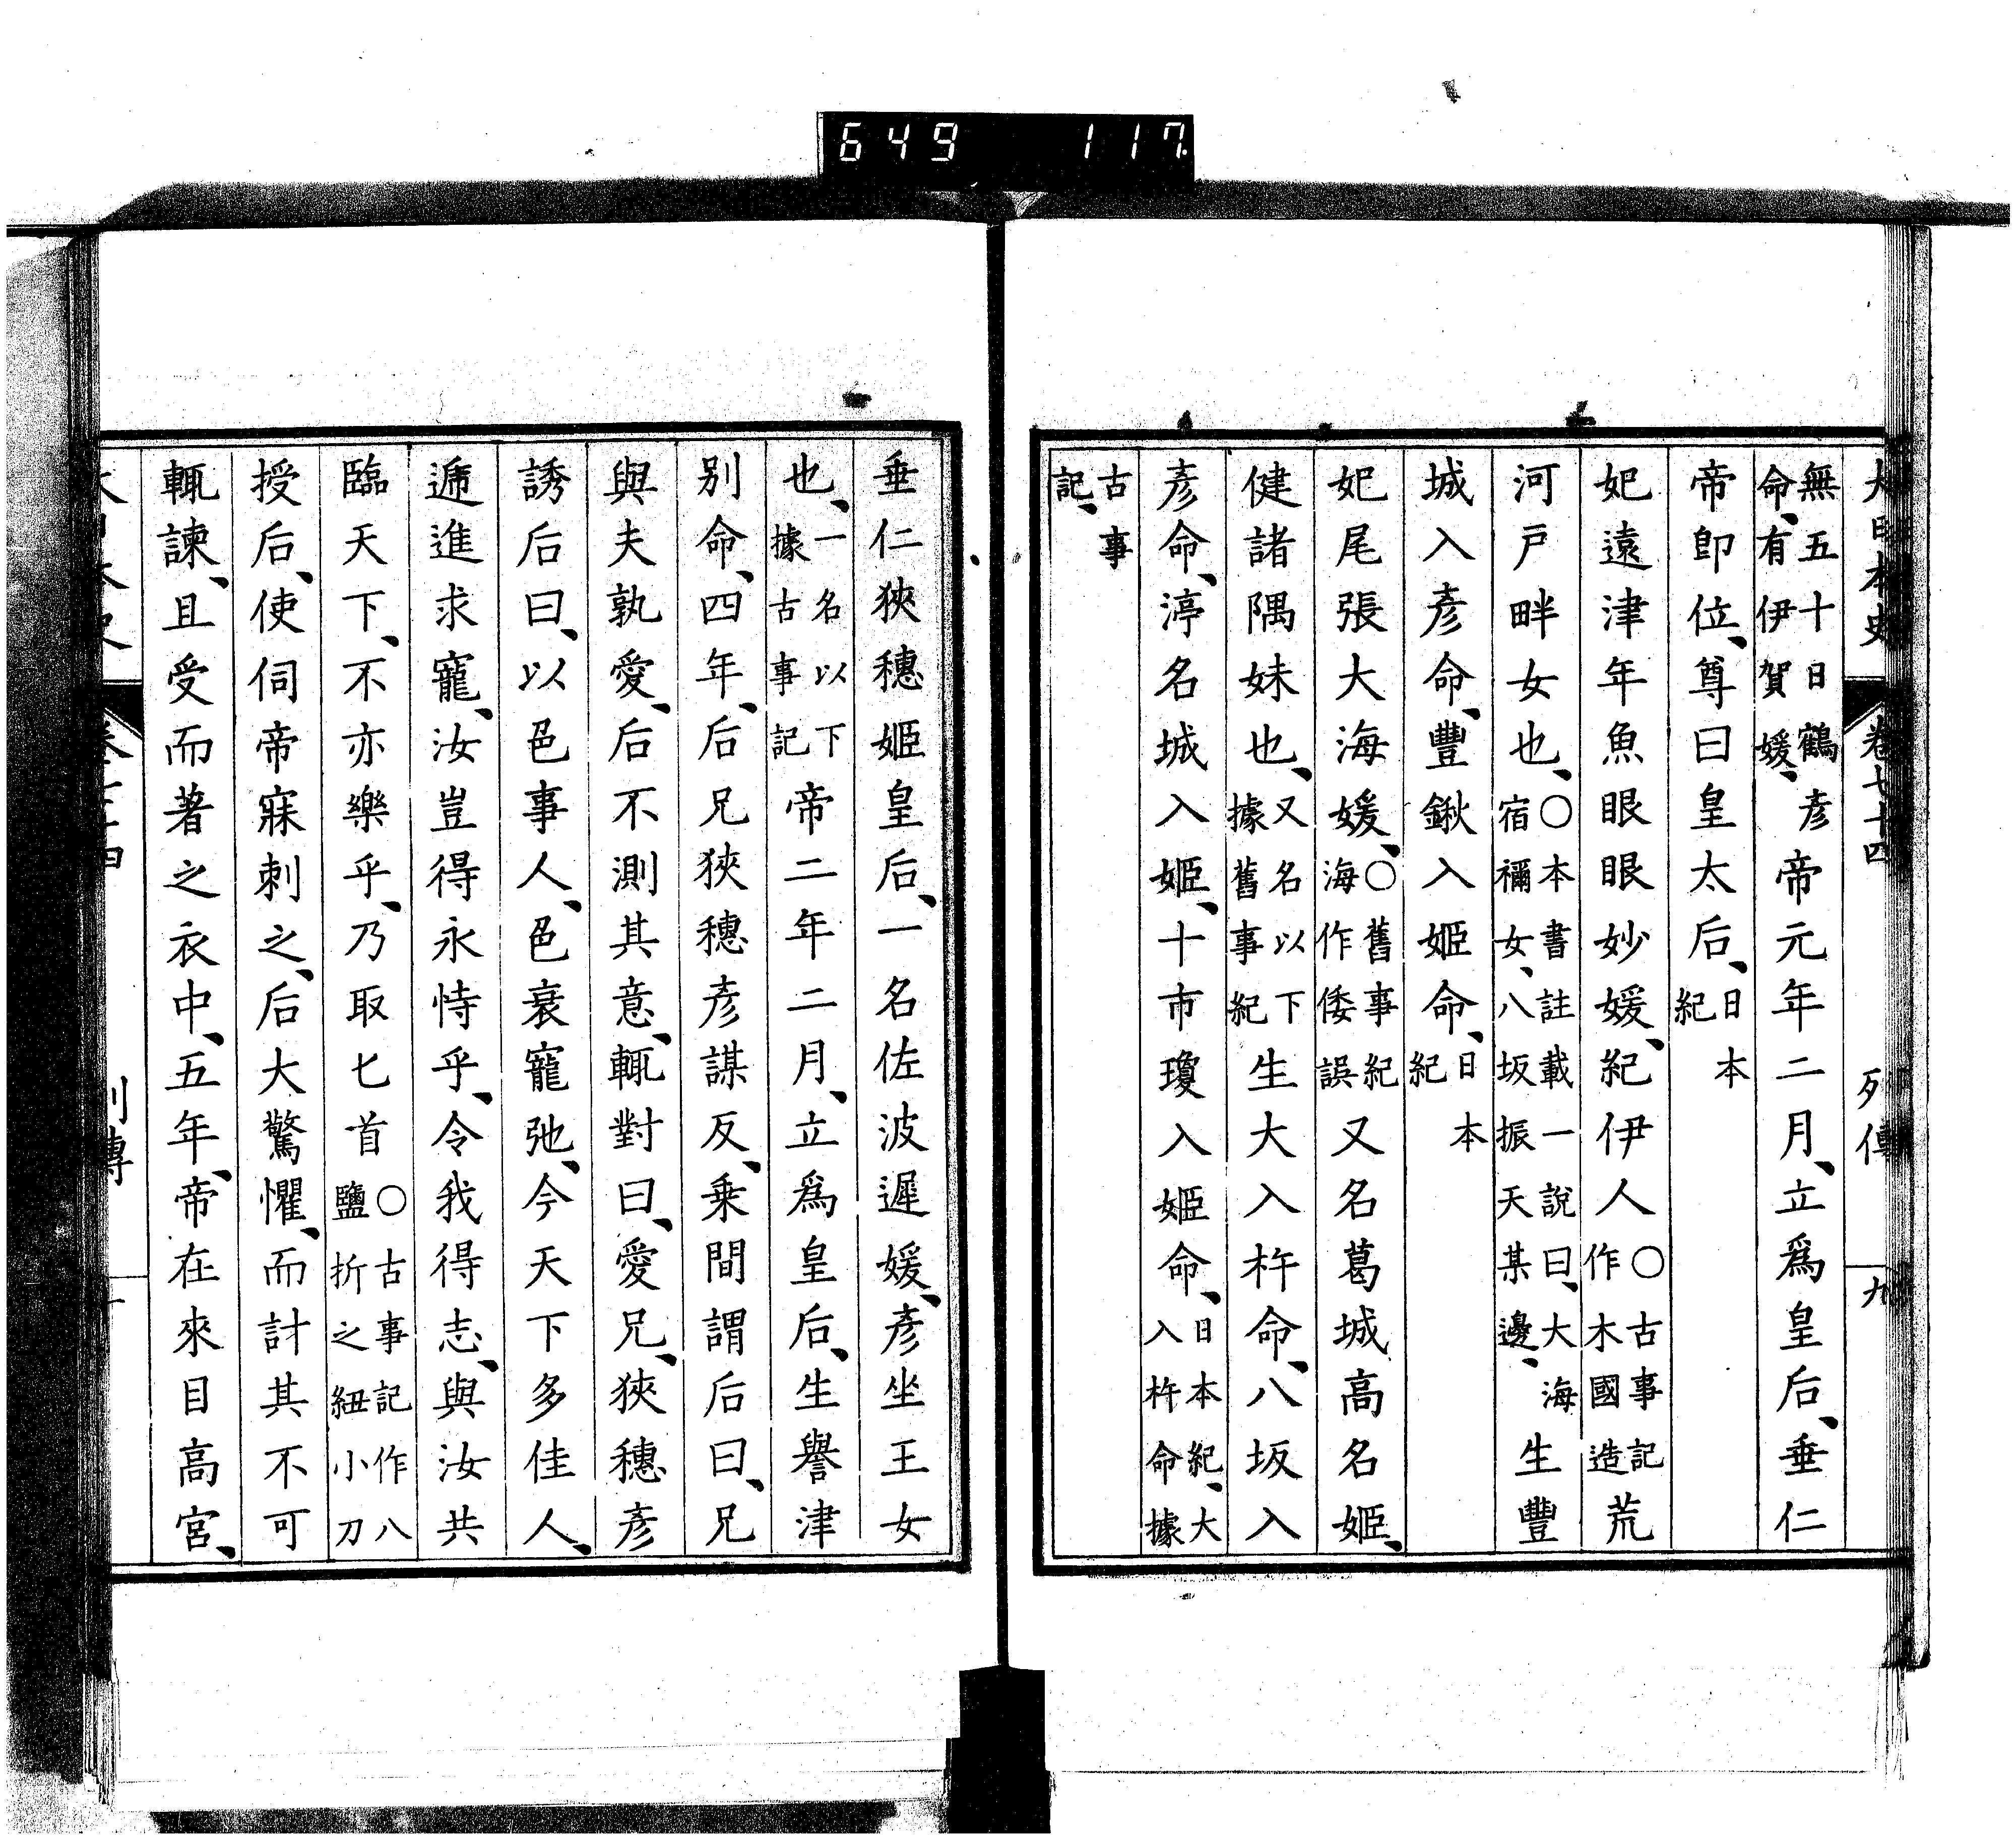 649 117
大日本史 卷七十四 列傳 九
無五十日鶴彥
命、有伊賀媛、
帝元年二月、立爲皇后、垂仁
帝卽位、尊曰皇太后、日本
紀
妃遠津年魚眼眼妙媛、紀伊人〇古事記
作木國造
荒
河戶畔女也、〇本書註載一說曰、大海
宿禰女、八坂振天某邊、
生豐
城入彥命、豐鍬入姬命、日本
紀
妃尾張大海媛、〇舊事紀
海作倭誤
又名葛城高名姬、
健諸隅妹也、又名以下
據舊事紀
生大入杵命、八坂入
彥命、渟名城入姬、十市瓊入姬命、日本紀、大
入杵命據
古事
記、
垂仁狹穗姬皇后、一名佐波遲媛、彥坐王女
也、一名以下
據古事記
帝二年二月、立爲皇后、生譽津
別命、四年、后兄狹穗彥謀反、乘間謂后曰、兄
與夫孰愛、后不測其意、輒對曰、愛兄、狹穗彥
誘后曰、以色事人、色衰寵弛、今天下多佳人、
遞進求寵、汝豈得永恃乎、令我得志、與汝共
臨天下、不亦樂乎、乃取匕首〇古事記作八
鹽折之紐小刀
授后、使伺帝寐刺之、后大驚懼、而討其不可
輒諫、且受而著之衣中、五年、帝在來目高宮、